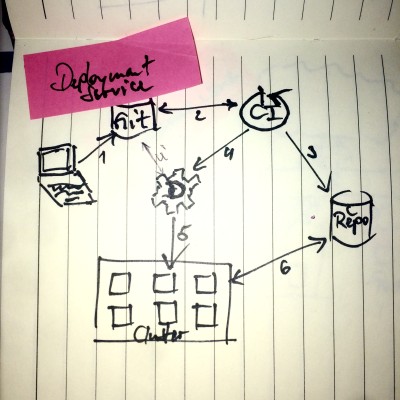 Deployment
Service
Git
2
CI
1
4'
4
3
D
Repo
5
6
Cluster